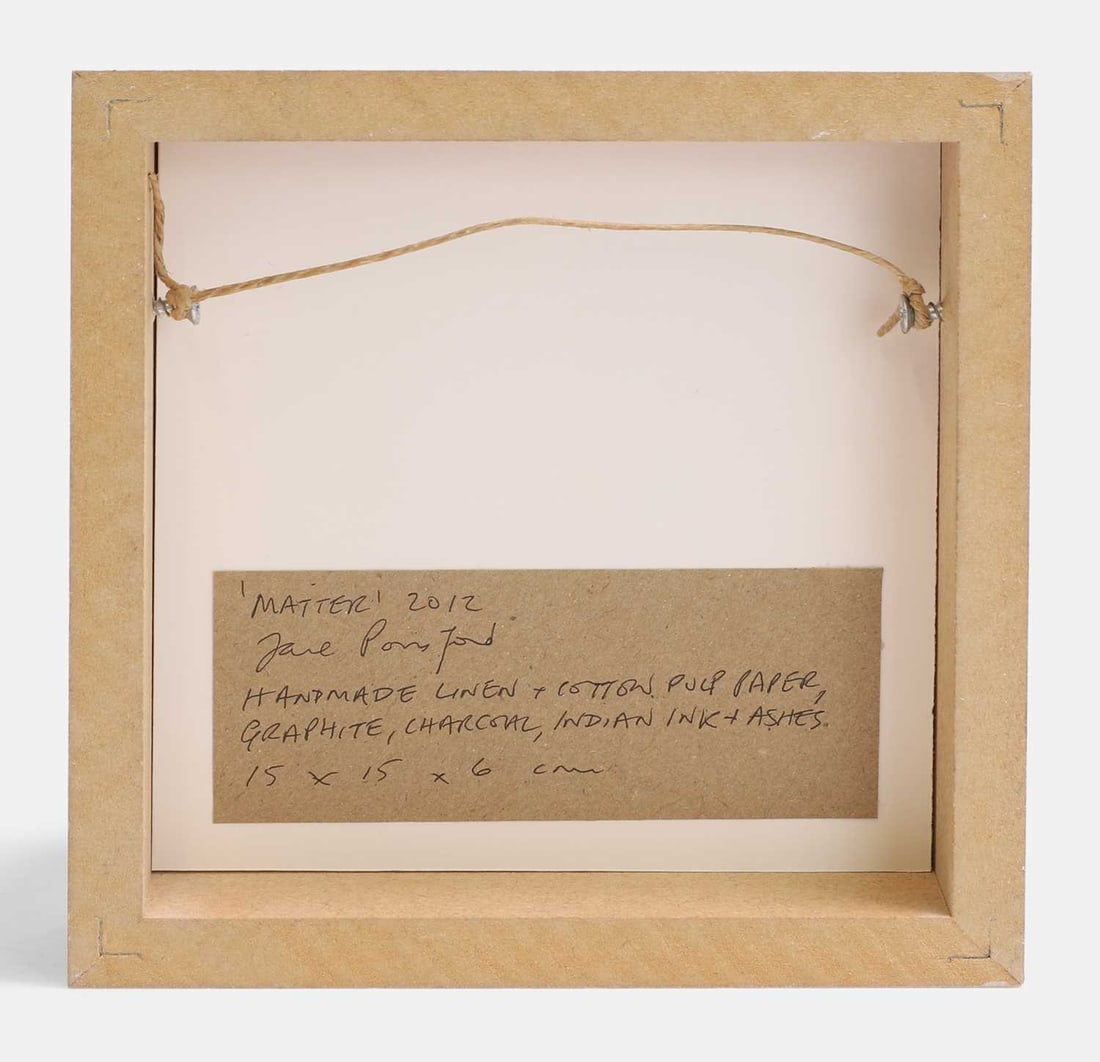 'MATTER' 2012
Jane Ponsford
HANDMADE LINEN + COTTON PULP PAPER,
GRAPHITE, CHARCOAL, INDIAN INK + ASHES.
15 x 15 x 6 cm